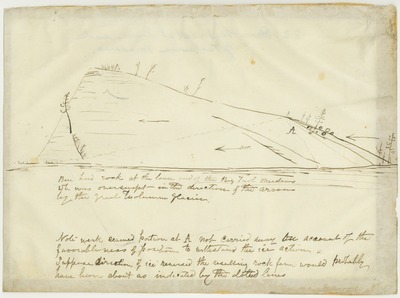 A
rock at the lower end of the Big Tuol. Meadows
wh. was overswept in the direction of the arrows
by the great Tuolumne Glacier
Note portion at A not carried away on account of the
favorableness of position to withstand the ice action.
Suppose direction of ice reversed the resulting rock form would probably
have been about as indicated by the dotted lines